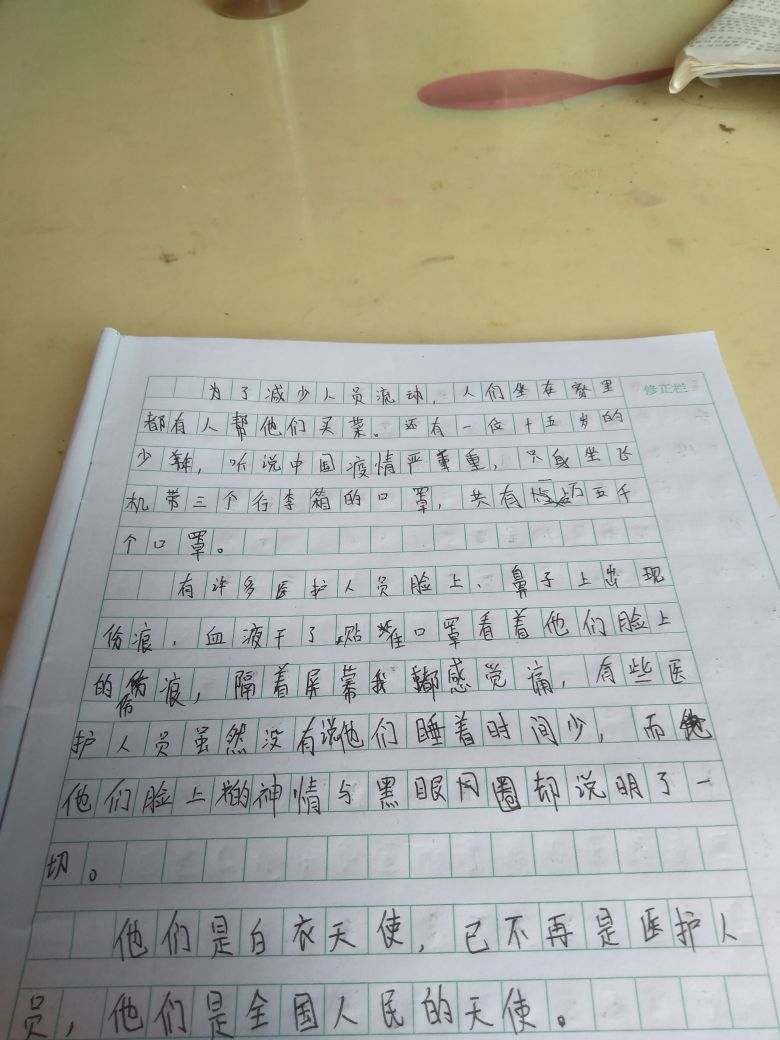 修正栏
为了减少人员流动，人们坐在家里
都有人帮他们买菜。还有一位十五岁的
少年，听说中国疫情严重，只身坐飞
机带三个行李箱的口罩，共有万五千
个口罩。
有许多医护人员脸上、鼻子上出现
伤痕，血液干了贴在口罩看着他们脸上
的伤痕，隔着屏幕我都感觉痛，有些医
护人员虽然没有说他们睡着时间少，而
他们脸上的神情与黑眼圈却说明了一
切。
他们是白衣天使，已不再是医护人
员，他们是全国人民的天使。